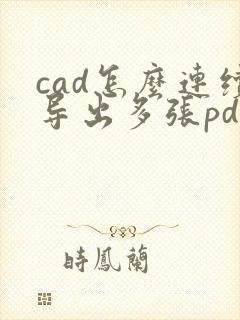 cad怎麼連續
导出多張pd
時鳳蘭